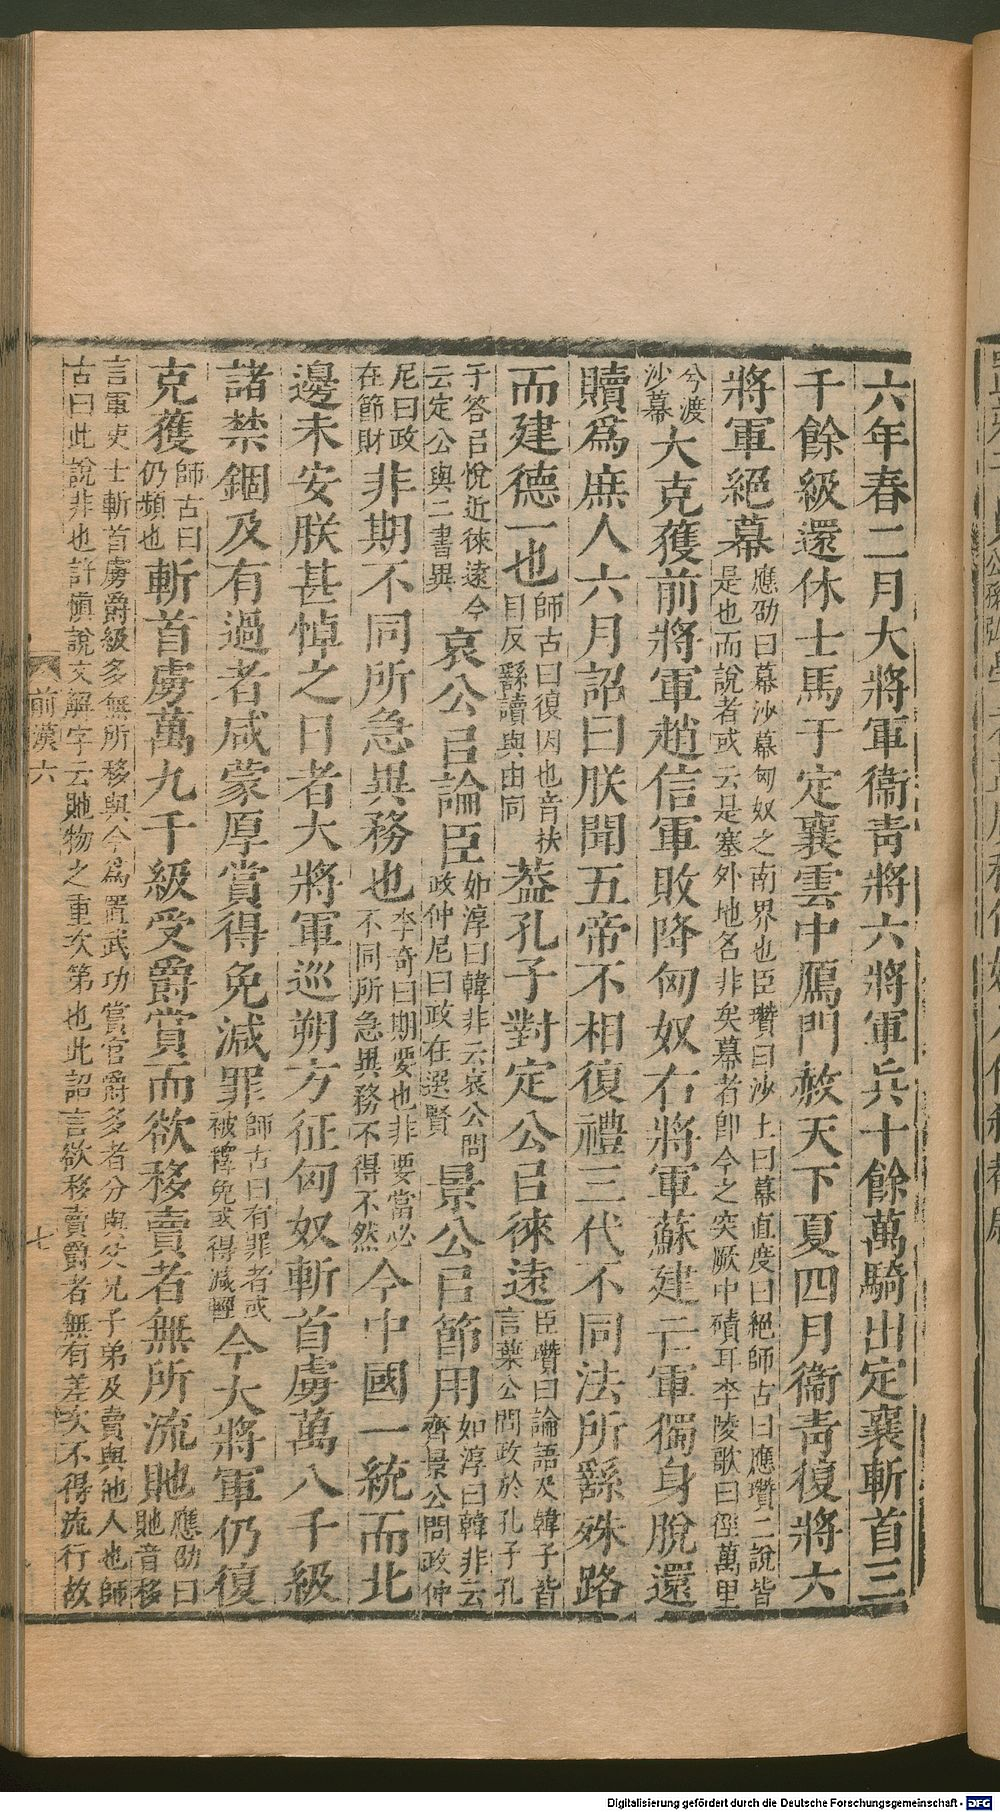 六年春二月大將軍衞青將六將軍兵十餘萬騎出定襄斬首三
千餘級還休士馬于定襄雲中鴈門赦天下夏四月衞青復將六
將軍絕幕應劭曰幕沙幕匈奴之南界也臣瓚曰沙土曰幕直度曰絕師古曰應瓚二說皆
是也而說者或云是塞外地名非矣幕者卽今之突厥中磧耳李陵歌曰徑萬里
兮渡
沙幕大克獲前將軍趙信軍敗降匈奴右將軍蘇建亡軍獨身脫還
贖爲庶人六月詔曰朕聞五帝不相復禮三代不同法所繇殊路
而建德一也師古曰復因也音扶
目反繇讀與由同葢孔子對定公㠯徠遠臣瓚曰論語及韓子皆
言葉公問政於孔子孔
子答㠯悅近徠遠今
云定公與二書異哀公㠯論臣如淳曰韓非云哀公問
政仲尼曰政在選賢景公㠯節用如淳曰韓非云
齊景公問政仲
尼曰政
在節財非期不同所急異務也李奇曰期要也非要當必
不同所急異務不得不然今中國一統而北
邊未安朕甚悼之日者大將軍巡朔方征匈奴斬首虜萬八千級
諸禁錮及有過者咸蒙厚賞得免減罪師古曰有罪者或
被釋免或得減輕今大將軍仍復
克獲師古曰
仍頻也斬首虜萬九千級受爵賞而欲移賣者無所流貤應劭曰
貤音移
言軍吏士斬首虜爵級多無所移與今爲置武功賞官爵多者分與父兄子弟及賣與他人也師
古曰此說非也許愼說文解字云貤物之重次第也此詔言欲移賣爵者無有差次不得流行故
前漢六
七
Digitalisierung gefördert durch die Deutsche Forschungsgemeinschaft - DFG